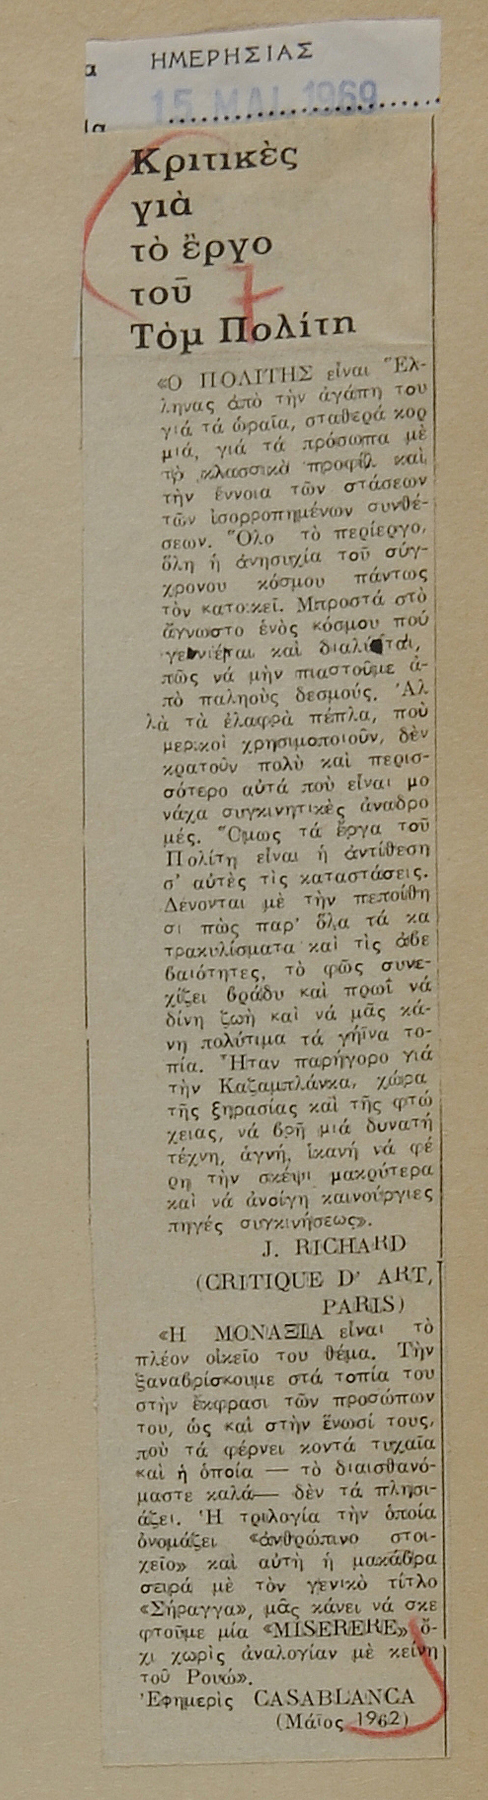 α ΗΜΕΡΗΣΙΑΣ
15 ΜΑΙ. 1969
ία
Κριτικὲς
γιὰ
τὸ ἔργο
τοῦ
Τὸμ Πολίτη
7
«Ο ΠΟΛΙΤΗΣ εἶναι Ἕλ-
ληνας ἀπὸ τὴν ἀγάπη του
γιά τά ὡραῖα, σταθερά κορ
μιά, γιά τά πρόσωπα μὲ
τὸ κλασσικὸ προφὶλ καὶ
τὴν ἔννοια τῶν στάσεων
τῶν ἰσορροπημένων συνθέ-
σεων. Ὅλο τὸ περίεργο,
ὅλη ἡ ἀνησυχία τοῦ σύγ-
χρονου κόσμου πάντως
τὸν κατοικεῖ. Μπροστά στὸ
ἄγνωστο ἑνὸς κόσμου πού
γεννιέται καὶ διαλύεται,
πῶς νά μὴν πιαστοῦμε ἀ-
πὸ παληοὺς δεσμούς. Ἀλ
λὰ τὰ ἐλαφρὰ πέπλα, ποὺ
μερικοὶ χρησιμοποιοῦν, δὲν
κρατοῦν πολὺ καὶ περισ-
σότερο αὐτά ποὺ εἶναι μο
νάχα συγκινητικὲς ἀναδρο
μές. Ὅμως τά ἔργα τοῦ
Πολίτη εἶναι ἡ ἀντίθεση
σ' αὐτὲς τὶς καταστάσεις.
Δένονται μὲ τὴν πεποίθη
σι πὼς παρ' ὅλα τά κα
τρακυλίσματα καὶ τὶς ἀβε
βαιότητες, τὸ φῶς συνε-
χίζει βράδυ καὶ πρωΐ νά
δίνη ζωὴ καὶ νά μᾶς κά-
νη πολύτιμα τά γήϊνα το-
πία. Ἦταν παρήγορο γιά
τὴν Καζαμπλάνκα, χώρα
τῆς ξηρασίας καὶ τῆς φτώ
χειας, νά βρῆ μιά δυνατή
τέχνη, ἁγνή, ἱκανή νά φέ
ρη τὴν σκέψι μακρύτερα
καὶ νά ἀνοίγη καινούργιες
πηγές συγκινήσεως».
J. RICHARD
(CRITIQUE D' ART,
PARIS)
«Η ΜΟΝΑΞΙΑ εἶναι τὸ
πλέον οἰκεῖο του θέμα. Τὴν
ξαναβρίσκουμε στά τοπία του
στὴν ἔκφρασι τῶν προσώπων
του, ὡς καὶ στὴν ἕνωσί τους,
ποὺ τά φέρνει κοντά τυχαῖα
καὶ ἡ ὁποία — τὸ διαισθανό-
μαστε καλά— δὲν τά πλησι-
άζει. Ἡ τριλογία τὴν ὁποία
ὀνομάζει «ἀνθρώπινο στοι-
χεῖο» καὶ αὐτὴ ἡ μακάβρα
σειρά μὲ τὸν γενικὸ τίτλο
«Σήραγγα», μᾶς κάνει νά σκε
φτοῦμε μία «MISERERE» ὄ-
χι χωρὶς ἀναλογίαν μὲ κείνη
τοῦ Ρουώ».
Ἐφημερὶς CASABLANCA
(Μάϊος 1962)